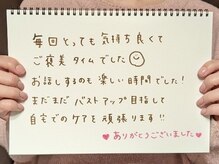 毎回とっても気持ち良くて
ご褒美タイムでした
お話しするのも楽しい時間でした!
まだまだバストアップ目指して
自宅でのケアを頑張ります!!
ありがとうございました